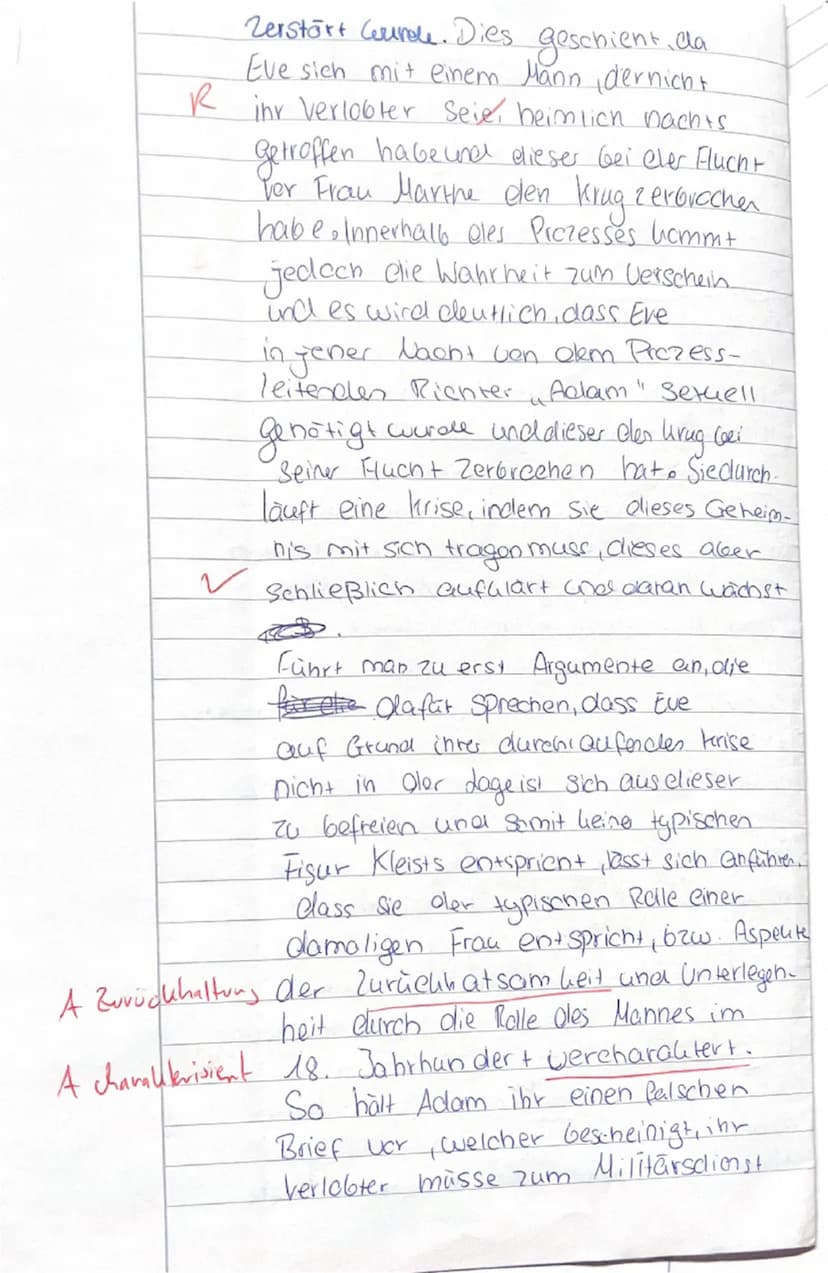 zerstört wurde. Dies geschient, da
Eve sich mit einem Mann, der nicht
R ihr Verlobter seie, heimlich nachts
getroffen habe und dieser bei der Flucht
vor Frau Marthe den Krug zerbrochen
habe. Innerhalb des Prozesses kommt
jedoch die Wahrheit zum Verschein
und es wird deutlich, dass Eve
in jener Nacht von dem Prozess-
leitenden Richter „Adam" sexuell
genötigt wurde und dieser den Krug bei
seiner Flucht zerbrochen hat. Sie durch-
läuft eine Krise, indem sie dieses Geheim-
nis mit sich tragen muss, dieses aber
✓ schließlich aufklärt und daran wächst
.
Führt man zu erst Argumente an, die
dafür sprechen, dass Eve
auf Grund ihres durchlaufenden Krise
nicht in der Lage ist sich aus dieser
zu befreien und somit keine typischen
Figur Kleists entspricht, lässt sich anführen,
dass sie der typischen Rolle einer
damaligen Frau entspricht, bzw. Aspekte
A Zurückhaltung der Zurückhatsamkeit und Unterlegen-
heit durch die Rolle des Mannes im
A charakterisiert 18. Jahrhundert vercharaktert.
So hält Adam ihr einen falschen
Brief vor, welcher bescheinigt, ihr
Verlobter müsse zum Militärsdienst